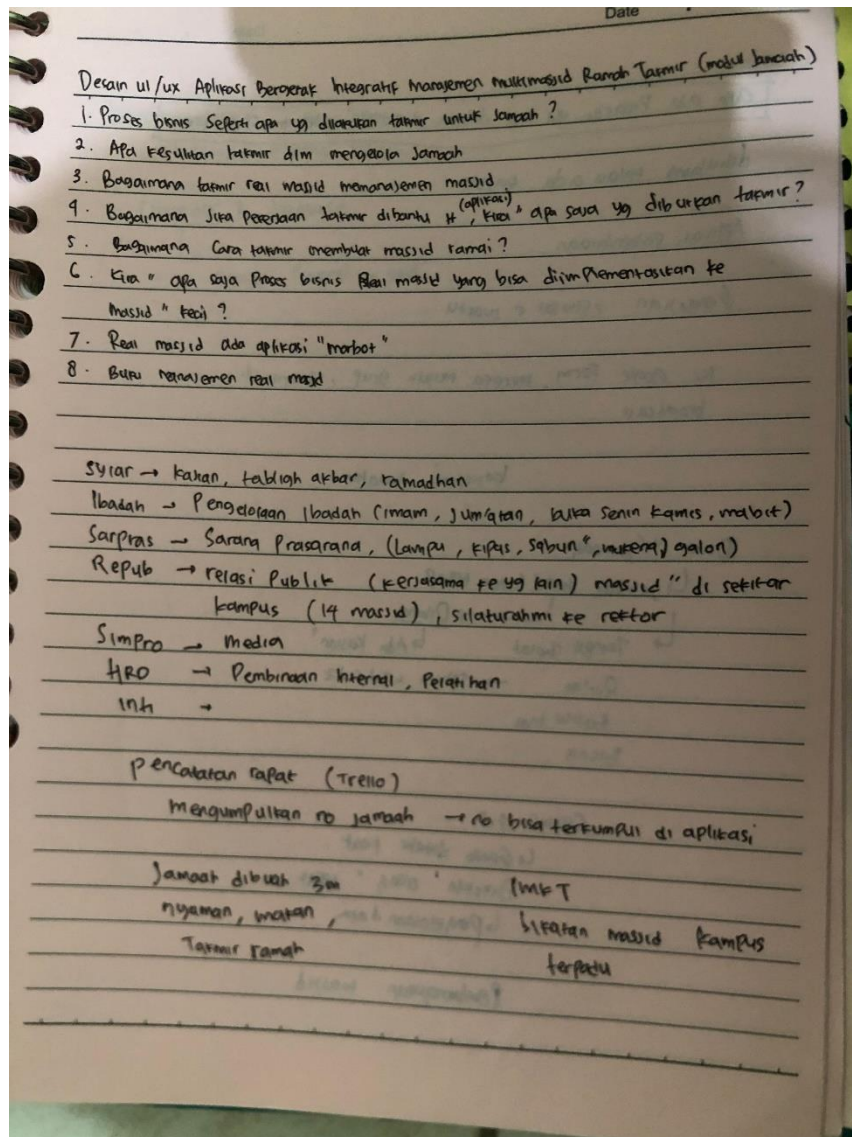 Date
Desain ui/ux Aplikasi Bergerak Integratif Manajemen multimasjid Ramah Takmir (modul Jamaah)
1. Proses bisnis Seperti apa yg dilakukan takmir untuk Jamaah ?
2. Apa kesulitan takmir dlm mengelola Jamaah
3. Bagaimana takmir real masjid memanajemen masjid
(aplikasi)
4. Bagaimana Jika Pekerjaan takmir dibantu , kira" apa saja yg dibutkan takmir ?
5. Bagaimana Cara takmir membuat masjid ramai ?
6. Kira" apa saja Proses bisnis Real masjid yang bisa diimplementasikan ke
masjid" kecil ?
7. Real masjid ada aplikasi "marbot"
8. Buku manajemen real masjid
Syiar → kajian, tabligh akbar, ramadhan
Ibadah → Pengelolaan Ibadah (imam, Jum'atan, buka Senin kamis, mabit)
Sarpras → Sarana Prasarana, (Lampu, kipas, Sabun", mukena) galon)
Repub → relasi Publik (kerjasama ke yg lain) masjid" di sekitar
kampus (14 masjid), silaturahmi ke rektor
Simpro → media
HRO → Pembinaan Internal, Pelatihan
Inti →
Pencatatan rapat (Trello)
mengumpulkan no jamaah → no bisa terkumpul di aplikasi
Jamaah dibuat 3m IMKT
nyaman, makan, ikatan masjid kampus
Takmir ramah terpadu